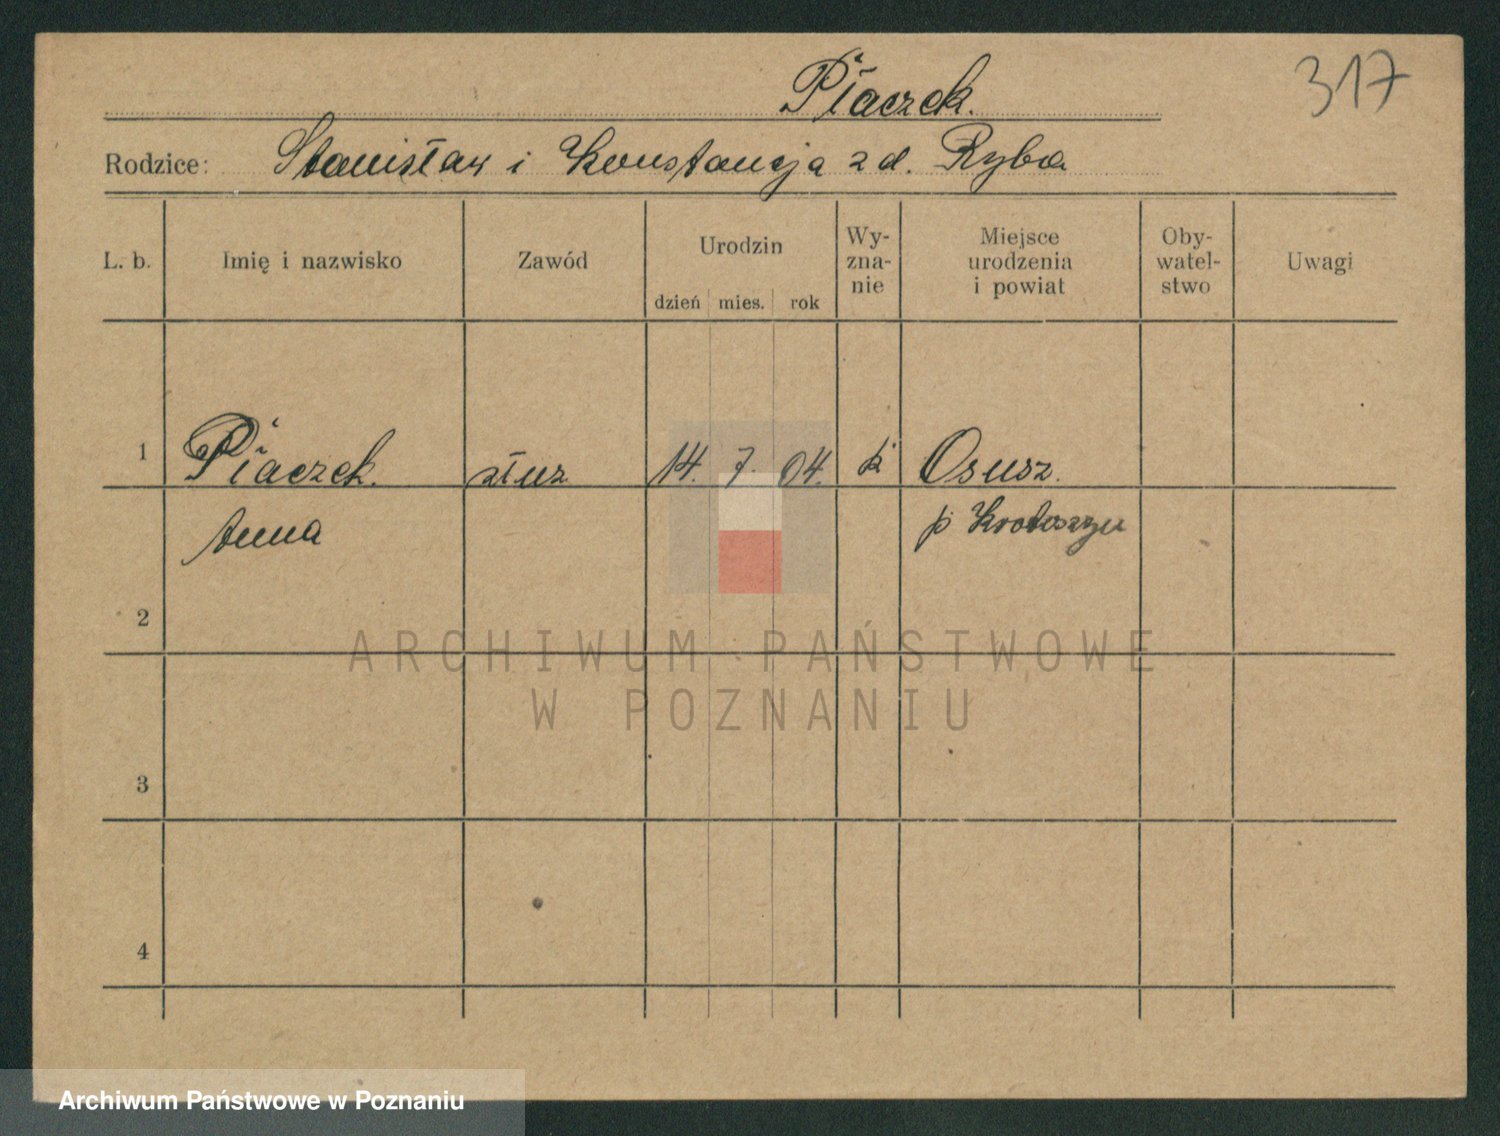 Płaczek.
317
Rodzice: Stanisław i Konstancja z d. Ryba
L. b.
Imię i nazwisko
Zawód
Urodzin
dzień mies. rok
Wy-
zna-
nie
Miejsce
urodzenia
i powiat
Oby-
watel-
stwo
Uwagi
1 Płaczek. służ 14. 7. 04. k Osusz.
Anna p Krotoszyn
2
3
4
ARCHIWUM PAŃSTWOWE
W POZNANIU
Archiwum Państwowe w Poznaniu